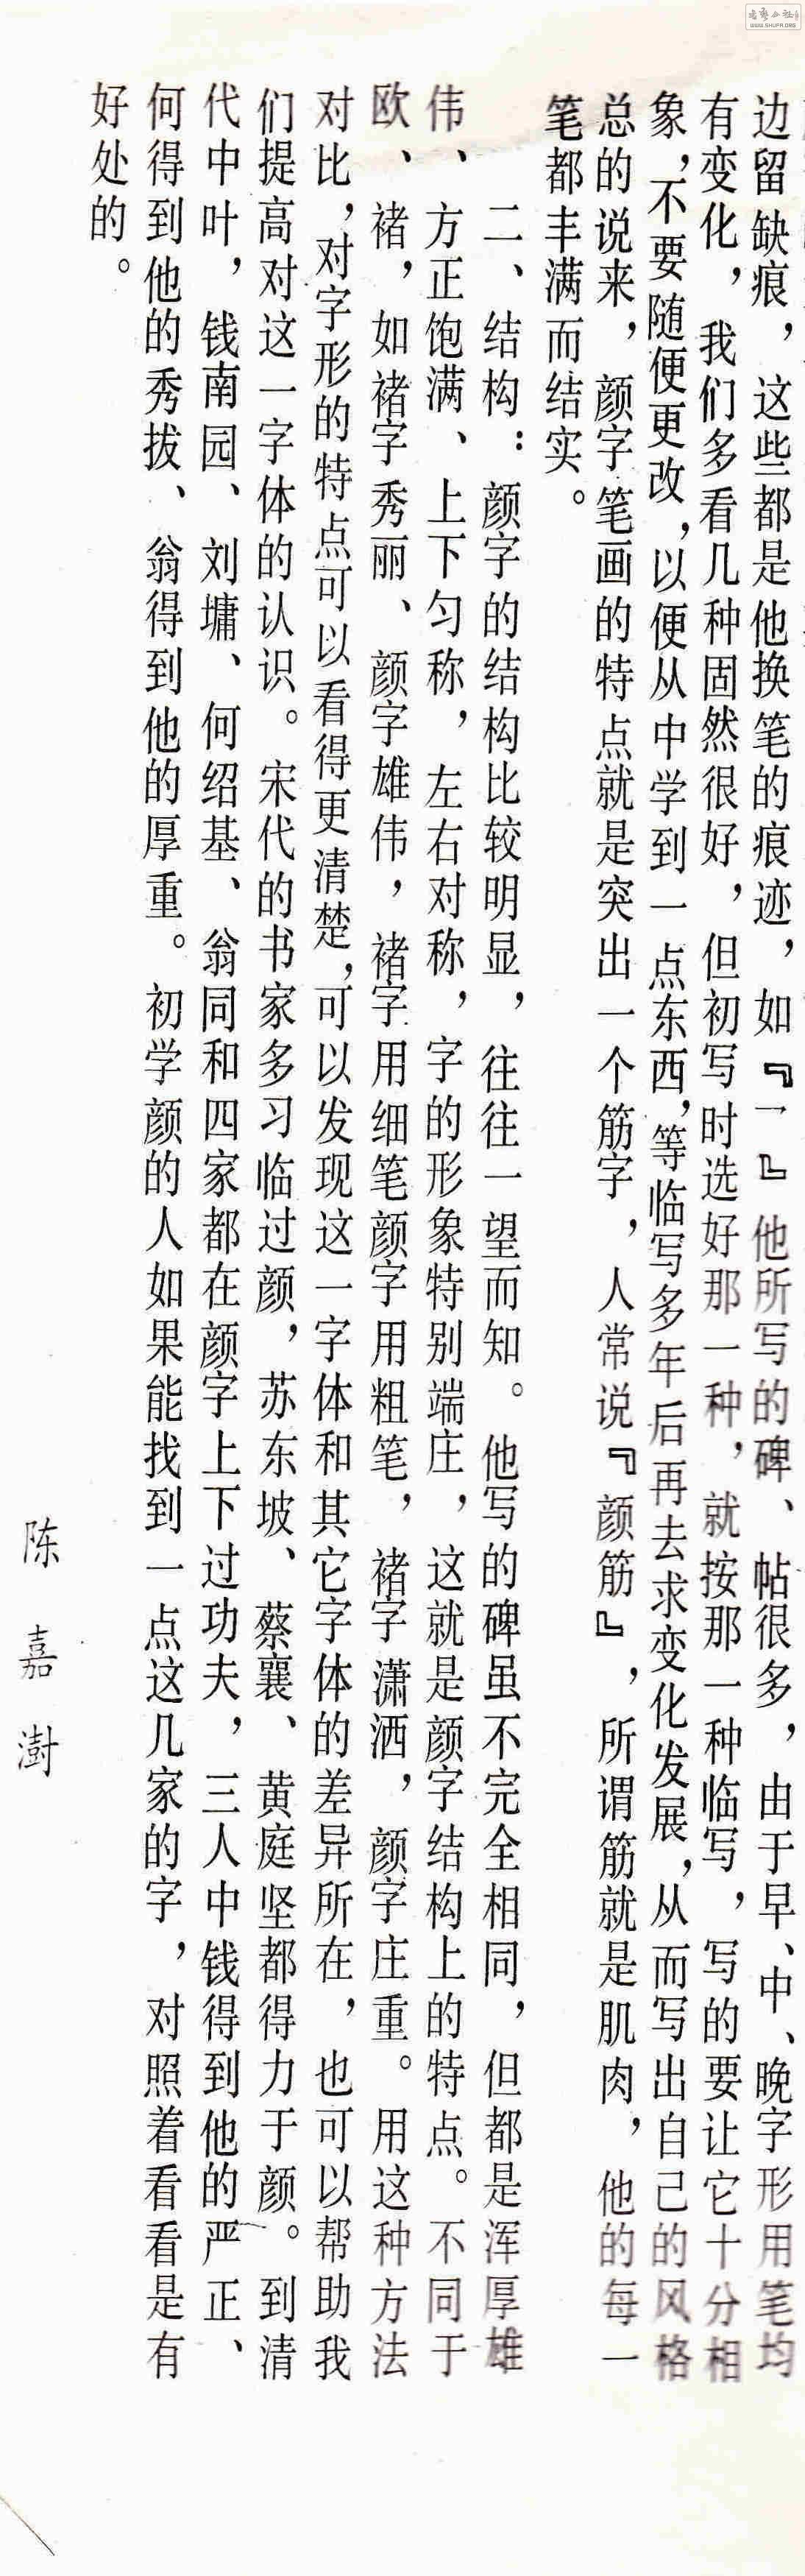 边留缺痕，这些都是他换笔的痕迹，如『一』他所写的碑、帖很多，由于早、中、晚字形用笔均
有变化，我们多看几种固然很好，但初写时选好那一种，就按那一种临写，写的要让它十分相
象，不要随便更改，以便从中学到一点东西，等临写多年后再去求变化发展，从而写出自己的风格
总的说来，颜字笔画的特点就是突出一个筋字，人常说『颜筋』，所谓筋就是肌肉，他的每一
笔都丰满而结实。
二、结构：颜字的结构比较明显，往往一望而知。他写的碑虽不完全相同，但都是浑厚雄
伟、方正饱满、上下匀称，左右对称，字的形象特别端庄，这就是颜字结构上的特点。不同于
欧、褚，如褚字秀丽、颜字雄伟，褚字用细笔颜字用粗笔，褚字潇洒，颜字庄重。用这种方法
对比，对字形的特点可以看得更清楚，可以发现这一字体和其它字体的差异所在，也可以帮助我
们提高对这一字体的认识。宋代的书家多习临过颜，苏东坡、蔡襄、黄庭坚都得力于颜。到清
代中叶，钱南园、刘墉、何绍基、翁同和四家都在颜字上下过功夫，三人中钱得到他的严正、
何得到他的秀拔、翁得到他的厚重。初学颜的人如果能找到一点这几家的字，对照着看看是有
好处的。
陈嘉澍
WWW.SHUFA.ORG